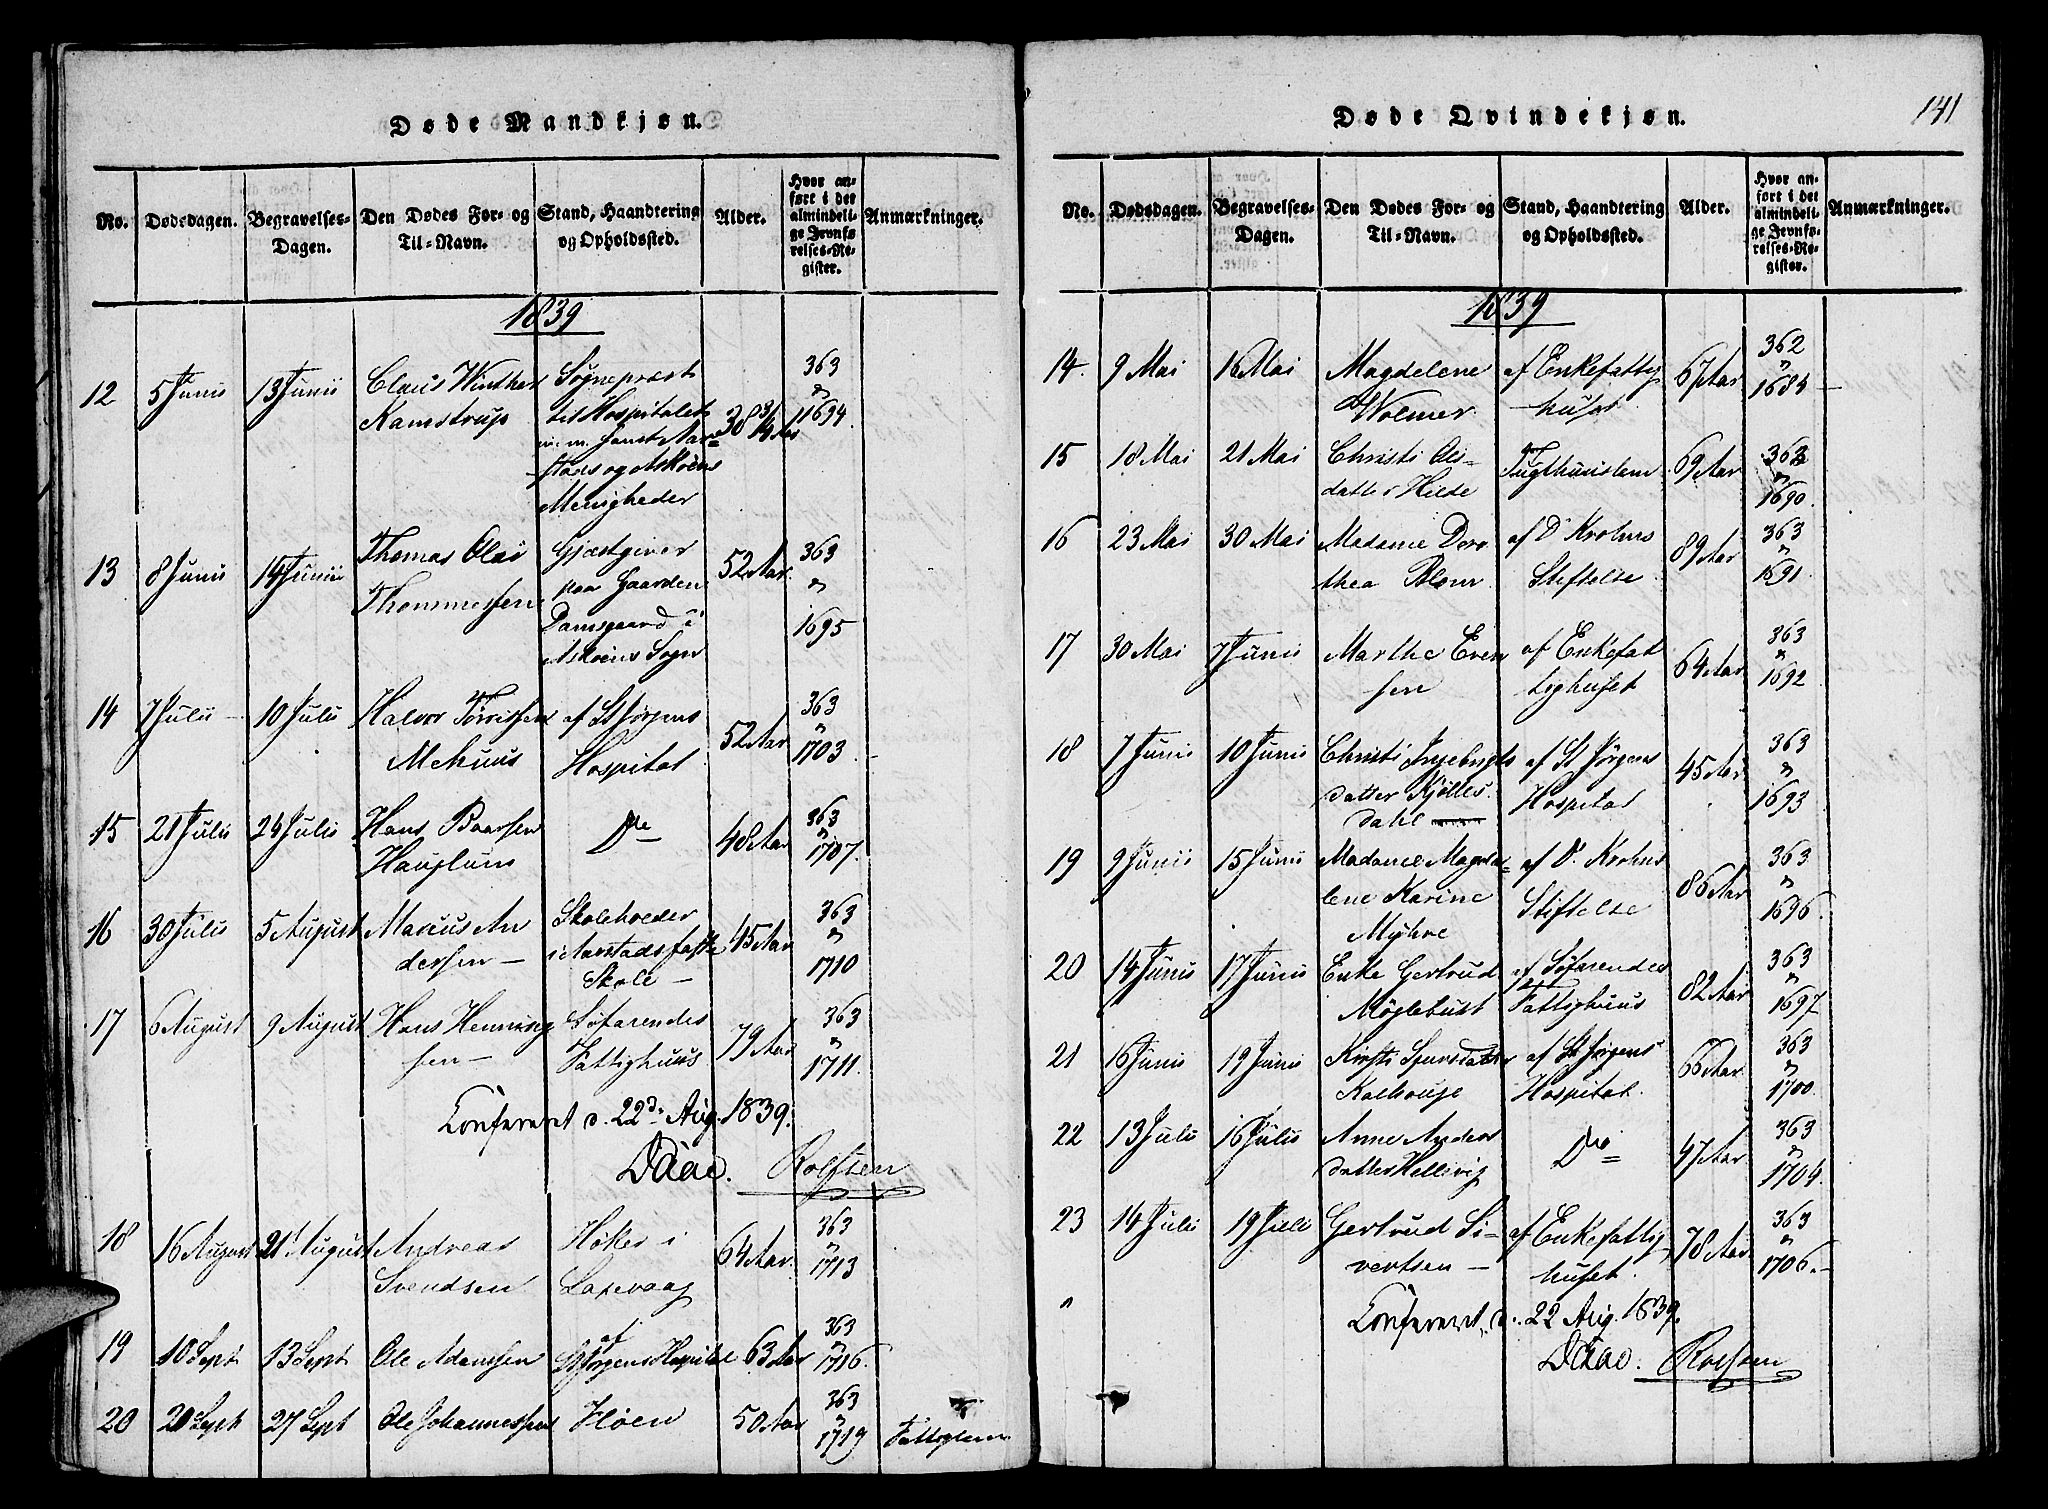 Døde Mandkjøn.
No. Dødsdagen. Begravelses-Dagen. Den Dødes For- og Til-Navn. Stand, Haandtering og Opholdssted. Alder. Hvor anført i det almindelige Jevnførelses-Register. Anmærkninger.
1839
12 5 Junii 13 Junii Claus Winther Sognepræst 363
Kamstrup til Hospitalet 38 n 1694.
samt Aar=
stads og Askøens
Menigheder
13 8 Junii 14 Junii Thomas Olai Gjæstgiver 52 Aar. 363
Thommessen paa Gaarden n
Damsgaard i 1695
Askøens Sogn
14 7 Julii - 10 Julii Halvor Torrissen af St Jørgens 52 Aar. 363
Mehuus Hospital n 1703.
15 21 Julii 24 Julii Hans Baarsen Do 48 Aar 363
Hauglum n 1707.
16 30 Julii 5 August Marius An Skoleholder 45 Aar 363
dersen - i Aarstads faste n 1710
Skole -
17 6 August 9 August Hans Henning Søfarendes 79 Aar 363
sen - Fattighuus n 1711.
Confereret d. 22d Aug. 1839.
Daae. Rolfsen
18 16 August 21 August Andreas Høker i 64 Aar. 363
Svendsen Laxevaag n 1713
19 10 Sept 13 Sept Ole Adamssen af St Jørgens Hospital 63 Aar 363
n 1716.
20 20 Sept 27 Sept Ole Johannessen Fløen 50 Aar 363
n 1719 Fattiglem
Døde Qvindekjøn. 141
No. Dødsdagen. Begravelses-Dagen. Den Dødes For- og Til-Navn. Stand, Haandtering og Opholdssted. Alder. Hvor anført i det almindelige Jevnførelses-Register. Anmærkninger.
1839
14. 9 Mai 16 Mai Magdelene af Enkefattig 67 Aar 362
Wolmer -huset n 1684
15 18 Mai 21 Mai Christi Ols- Tugthuuslem 69 Aar 363
datter Hilde n 1690.
16 23 Mai 30 Mai Madame Doro af D. Krohns 89 Aar 363
thea Blom Stiftelse n 1691.
17 30 Mai 7 Junii Marthe Even af Enkefat 64 Aar 363
sen tighuset n 1692
18 7 Junii 10 Junii Christi Ingebrigts af St Jørgens 45 Aar 363
datter Kjølles. Hospital n 1693
dahl
19 9 Junii 15 Junii Madame Magda= af D. Krohns 86 Aar 363
lene Karine Stiftelse n 1696.
Myhre
20 14 Junii 17 Junii Enke Gertrud af Søfarendes 82 Aar 363
Møglebust Fattighuus n 1697
21 16 Junii 19 Junii Kirsti Sjursdatter af St Jørgens 66 Aar 363
Kalhouge Hospital. n 1700.
22 13 Julii 16 Julii Anne Anders Do 47 Aar 363
datter Hellivig n 1704.
23 14 Julii 19 Juli Gertrud Si- af Enkefattig 78 Aar 363
vertsen - huset. n 1706.-
Confereret d. 22 Aug. 1839.
Daae. Rolfsen